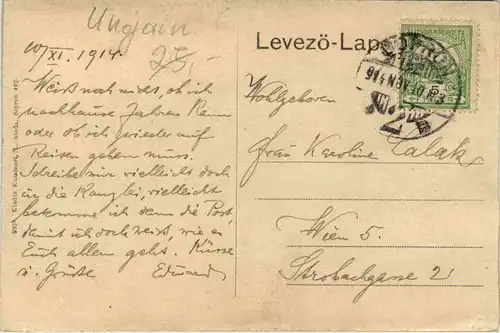 Ungarn
25,-
10/XI. 1914.
Weiss noch nicht, ob ich
nachhause fahren kann
oder ob ich wieder auf
Reisen gehen muss.
Schreibe mir vielleicht doch
in die Kanzlei, vielleicht
bekomme ich dann die Post,
damit ich doch weiss, wie es
Euch allen geht. Küsse
u. Grüsse Eduard
Levező-Lap
SOPRON
914 NOV. 10
Wohlgeboren
Frau Karoline Calak
Wien 5.
Strobachgasse 2